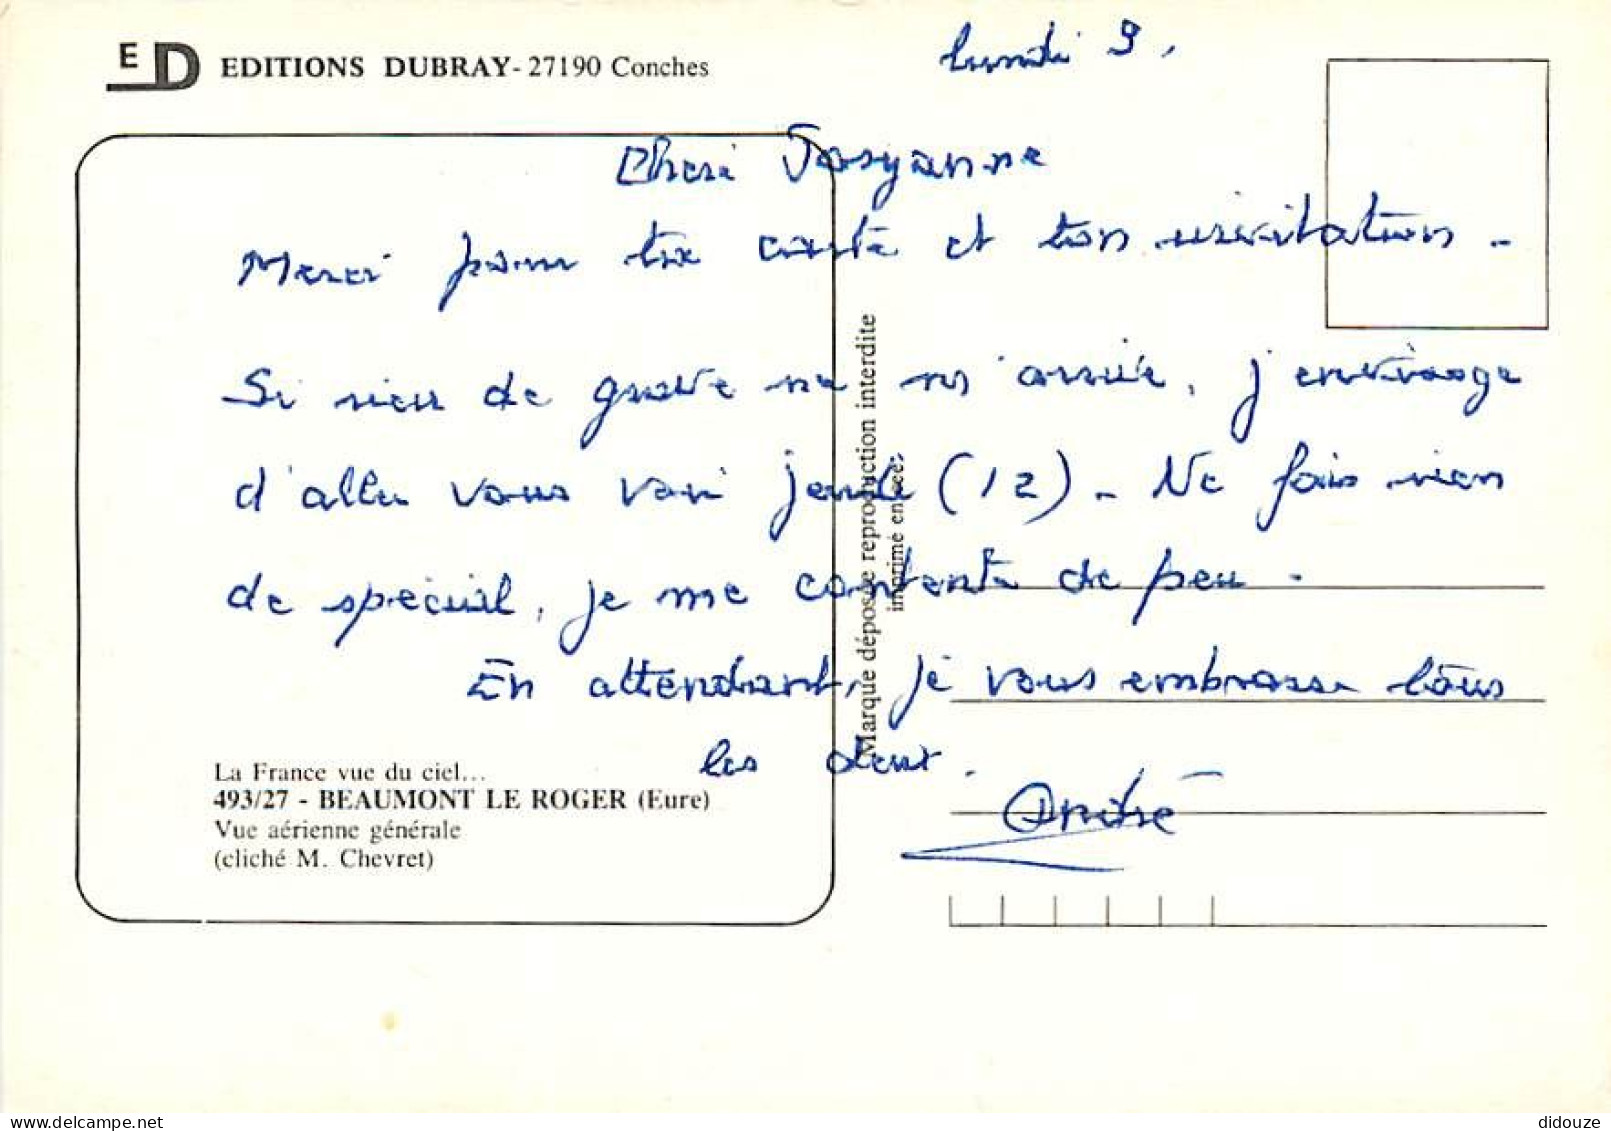 ED EDITIONS DUBRAY - 27190 Conches
lundi 9.
Cheri Josyanne
Merci pour ta carte et ton invitation.
Si rien de grave ne m'arrive, j'envisage
d'aller vous voir jeudi (12). Ne fais rien
de spécial, je me contente de peu.
En attendant, je vous embrasse tous
les deux.
André
La France vue du ciel...
493/27 - BEAUMONT LE ROGER (Eure)
Vue aérienne générale
(cliché M. Chevret)
Marque déposée reproduction interdite
imprimé en
didouze